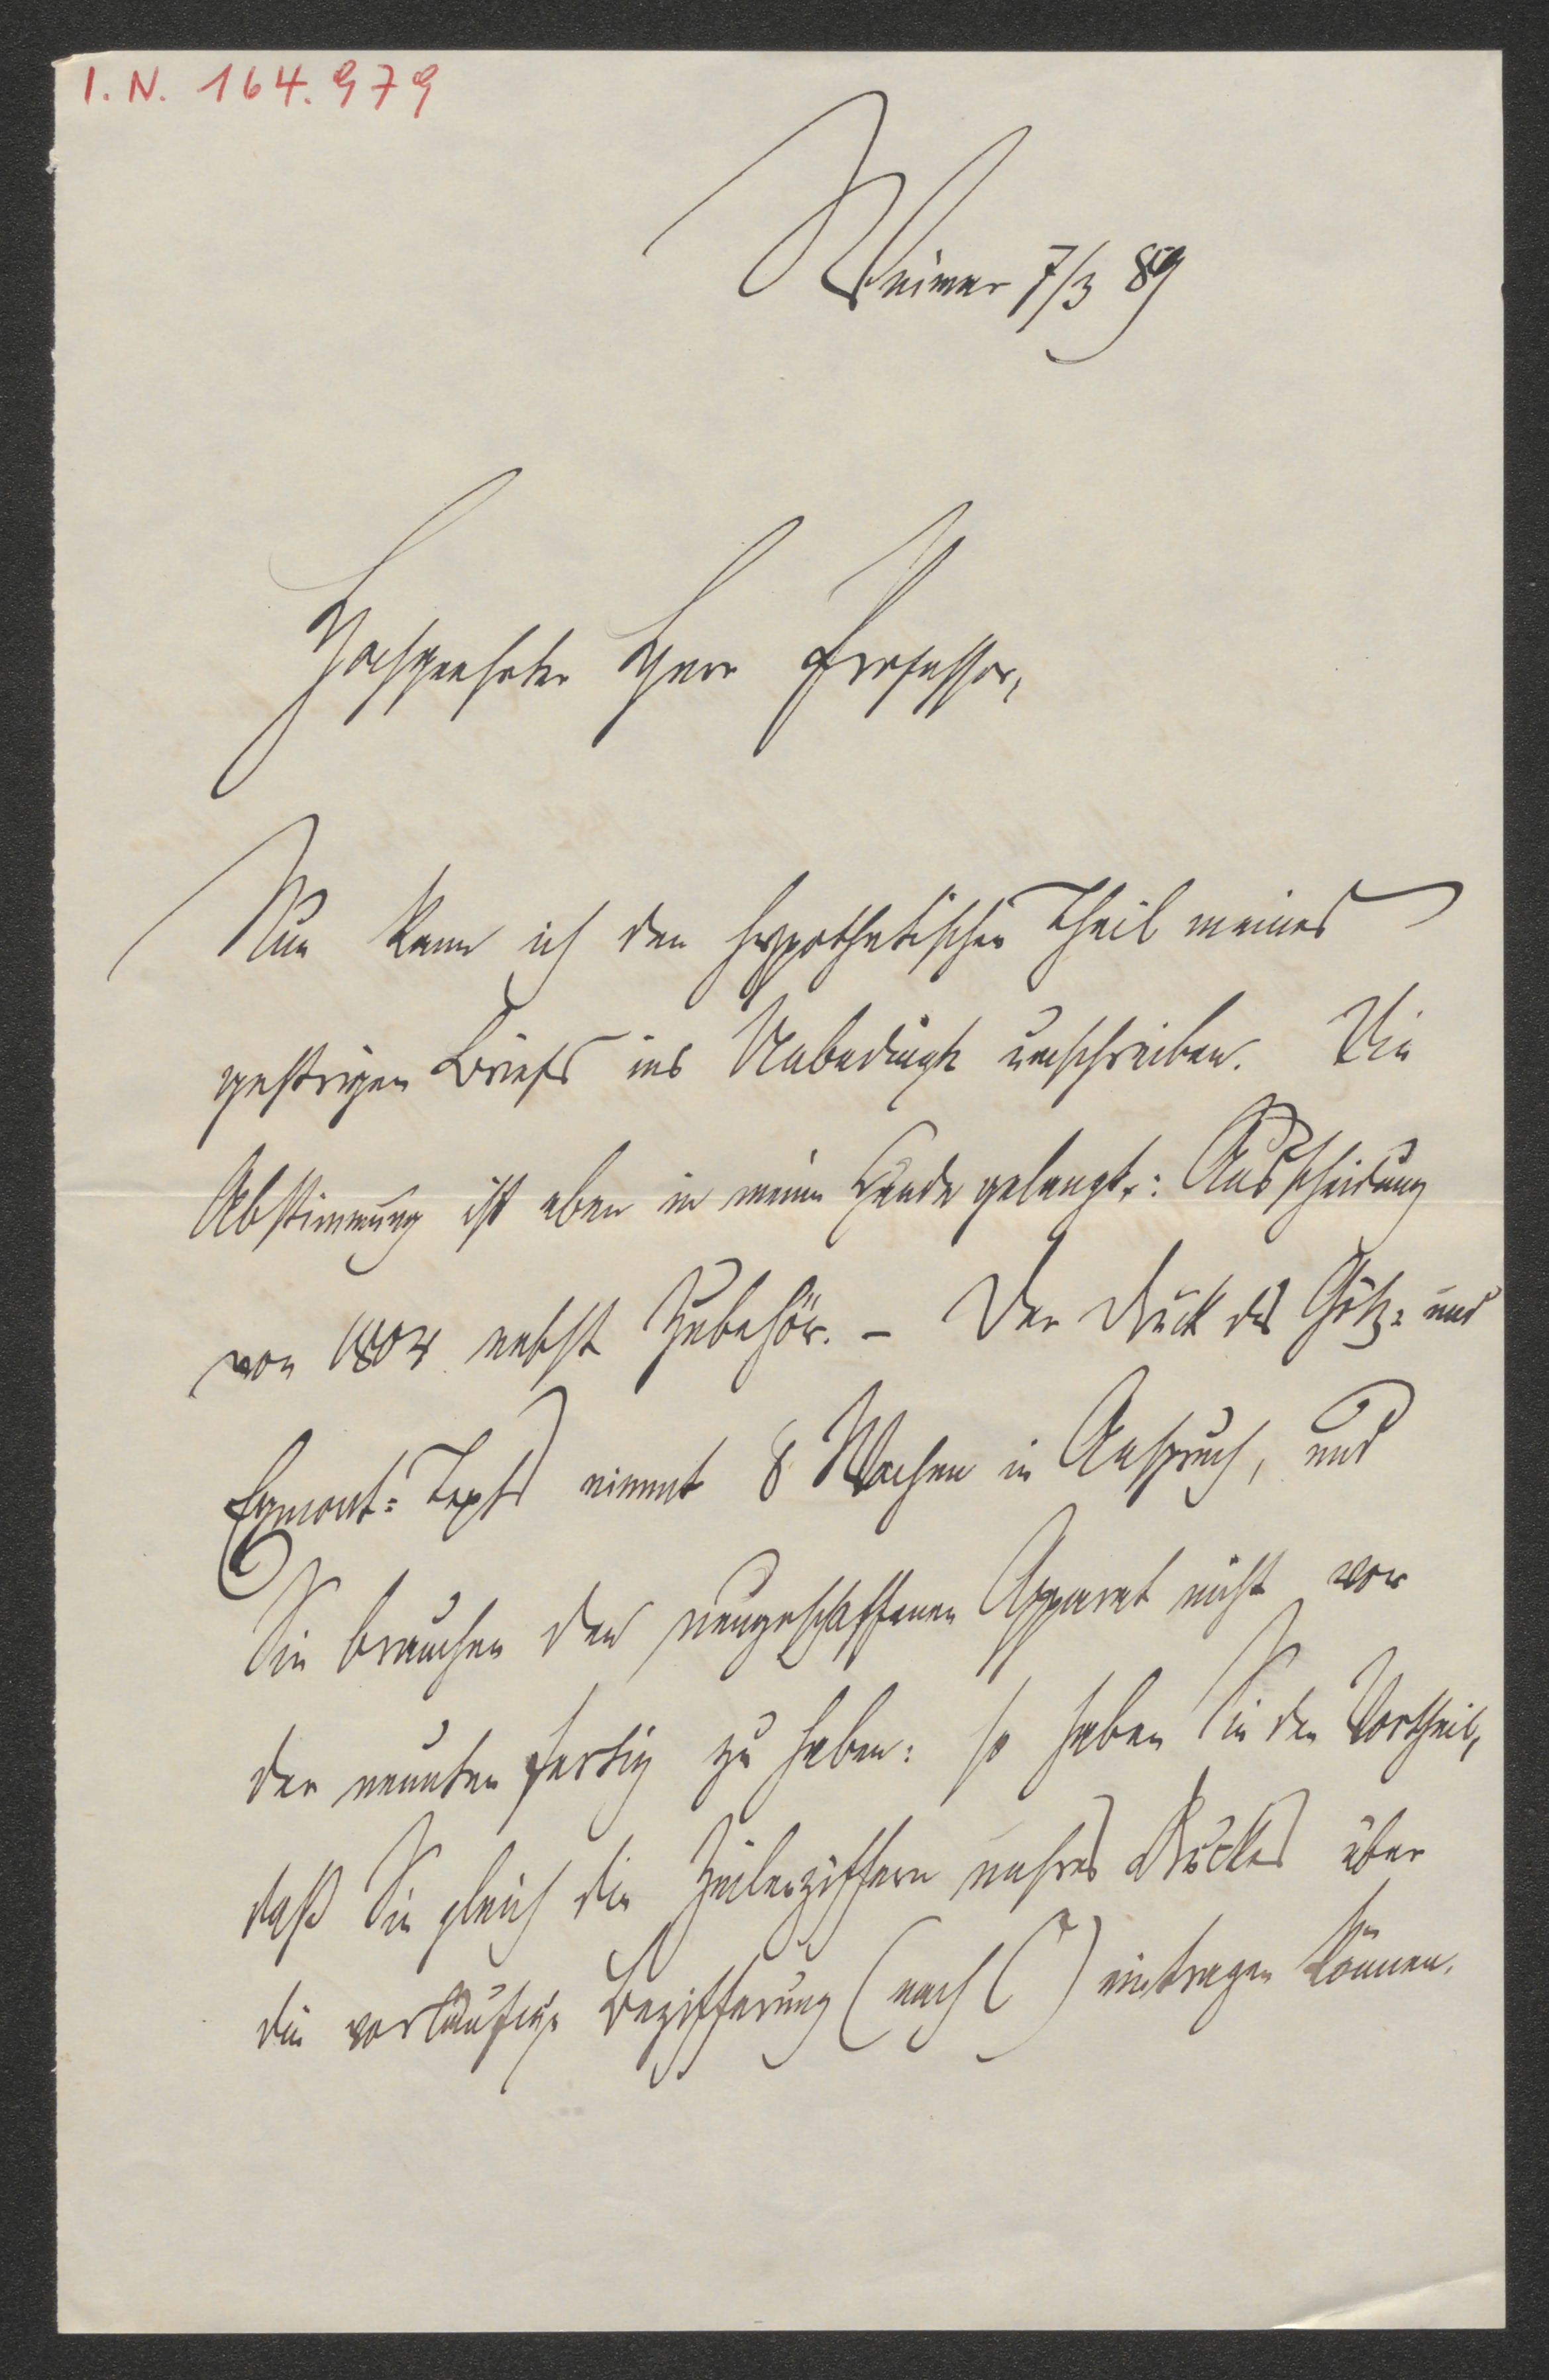 I. N. 164.979
Weimar 7/3 89
Hochgeehrter Herr Professor,
Nun kann ich den hypothetischen Theil meines
gestrigen Briefs ins Unbedingte umschreiben. Die
Abstimmung ist eben in meine Hände gelangt: Ausscheidung
von 1804 nebst Zubehör. – Der Druck des Götz- und
Egmont-Texts nimmt 8 Wochen in Anspruch, und
Sie brauchen den neugeschaffenen Apparat nicht vor
der neunten fertig zu haben: so haben Sie den Vortheil,
daß Sie gleich die Zeilenziffern unsres Druckes über
die vorläufige Bezifferung (nach C) eintragen können.